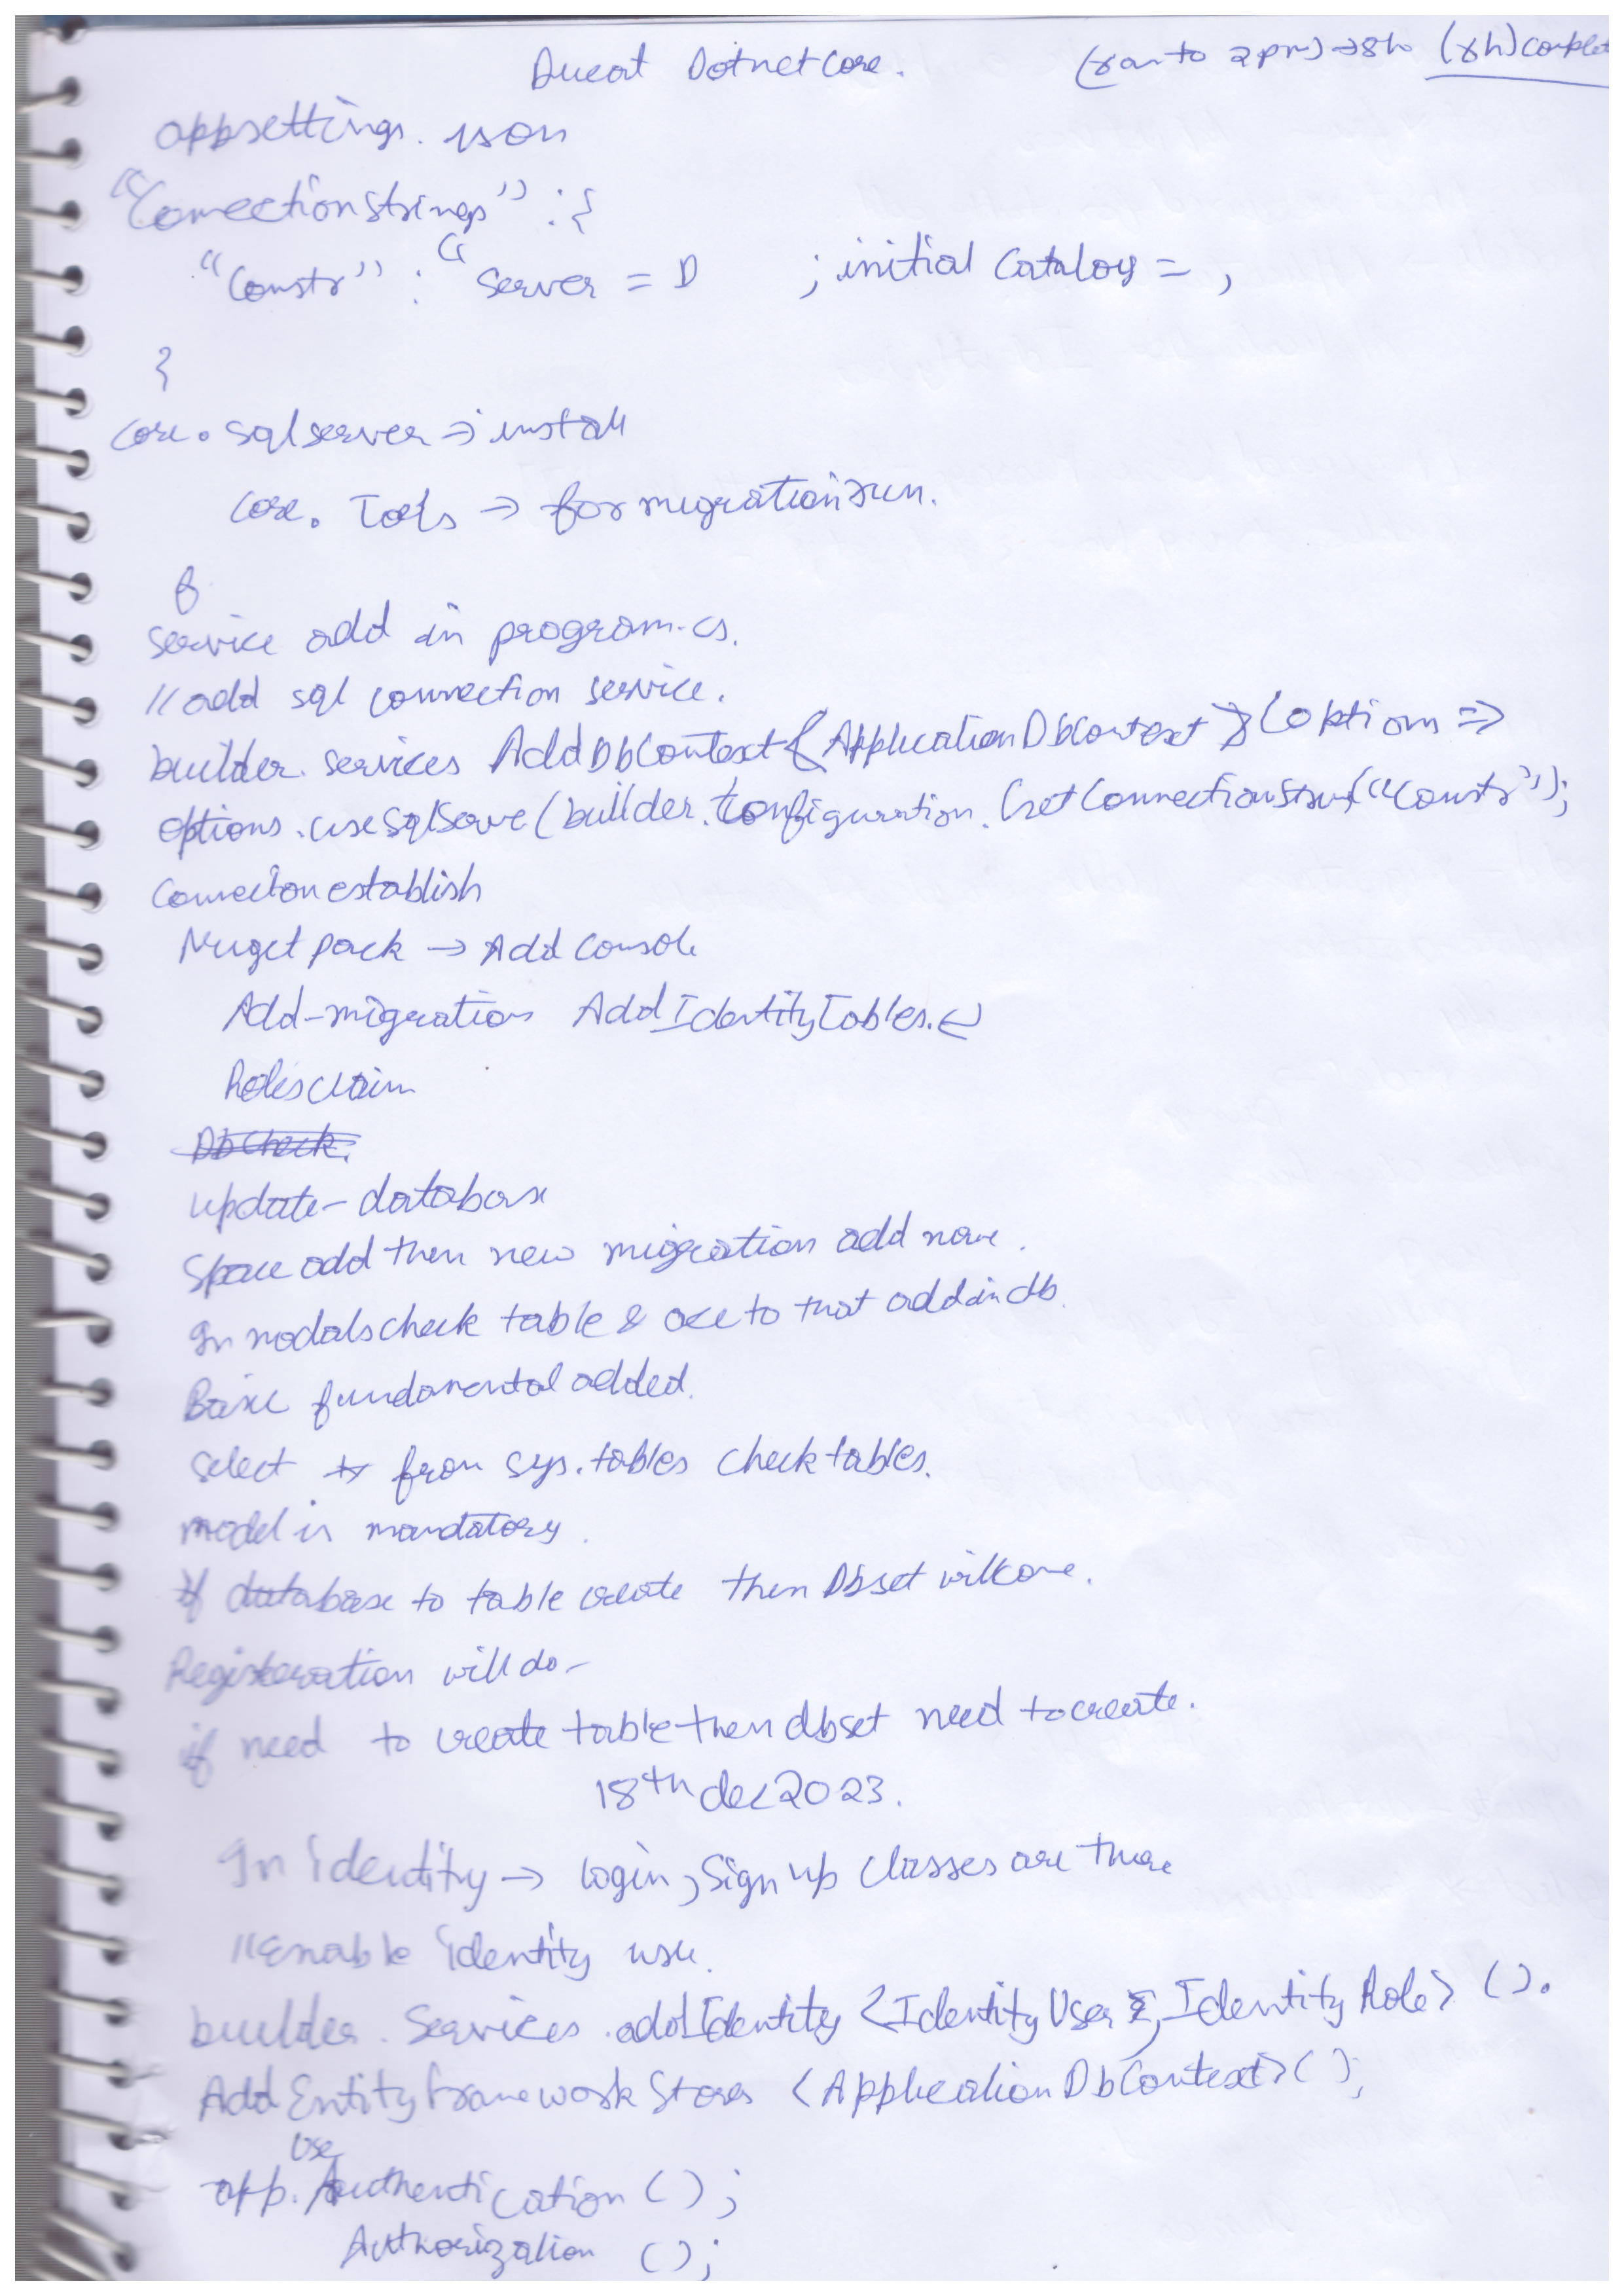 Ducat Dotnet Core. (8am to 2pm) → 8h (8h) complet
appsettings. json
"ConnectionStrings" : {
"Constr" : " Server = D ; initial Catalog = ,
}
Core. sqlserver → install
Core. Tools → for migration run.
Service add in program.cs.
// add sql connection service.
builder. services AddDbContext<ApplicationDbContext>(options =>
options .useSqlServe(builder.Configuration.GetConnectionString("Constr"));
Connection establish
Nuget pack → Add Console
Add-migration AddIdentityTables.↵
Roles claim
Db Check.
update-database
Space add then new migration add name.
In modals check table & to that add in db.
Basic fundamental added.
select * from sys.tables check tables.
model is mandatory.
if database to table create then Dbset will come.
Registeration will do -
if need to create table then dbset need to create.
18th dec 2023.
In identity → login, Sign up Classes are there
// Enable identity use.
builder. Services .addIdentity <IdentityUser, IdentityRole> ().
AddEntityFrameworkStores <ApplicationDbContext>();
app. Use Authentication ();
Authorization ();